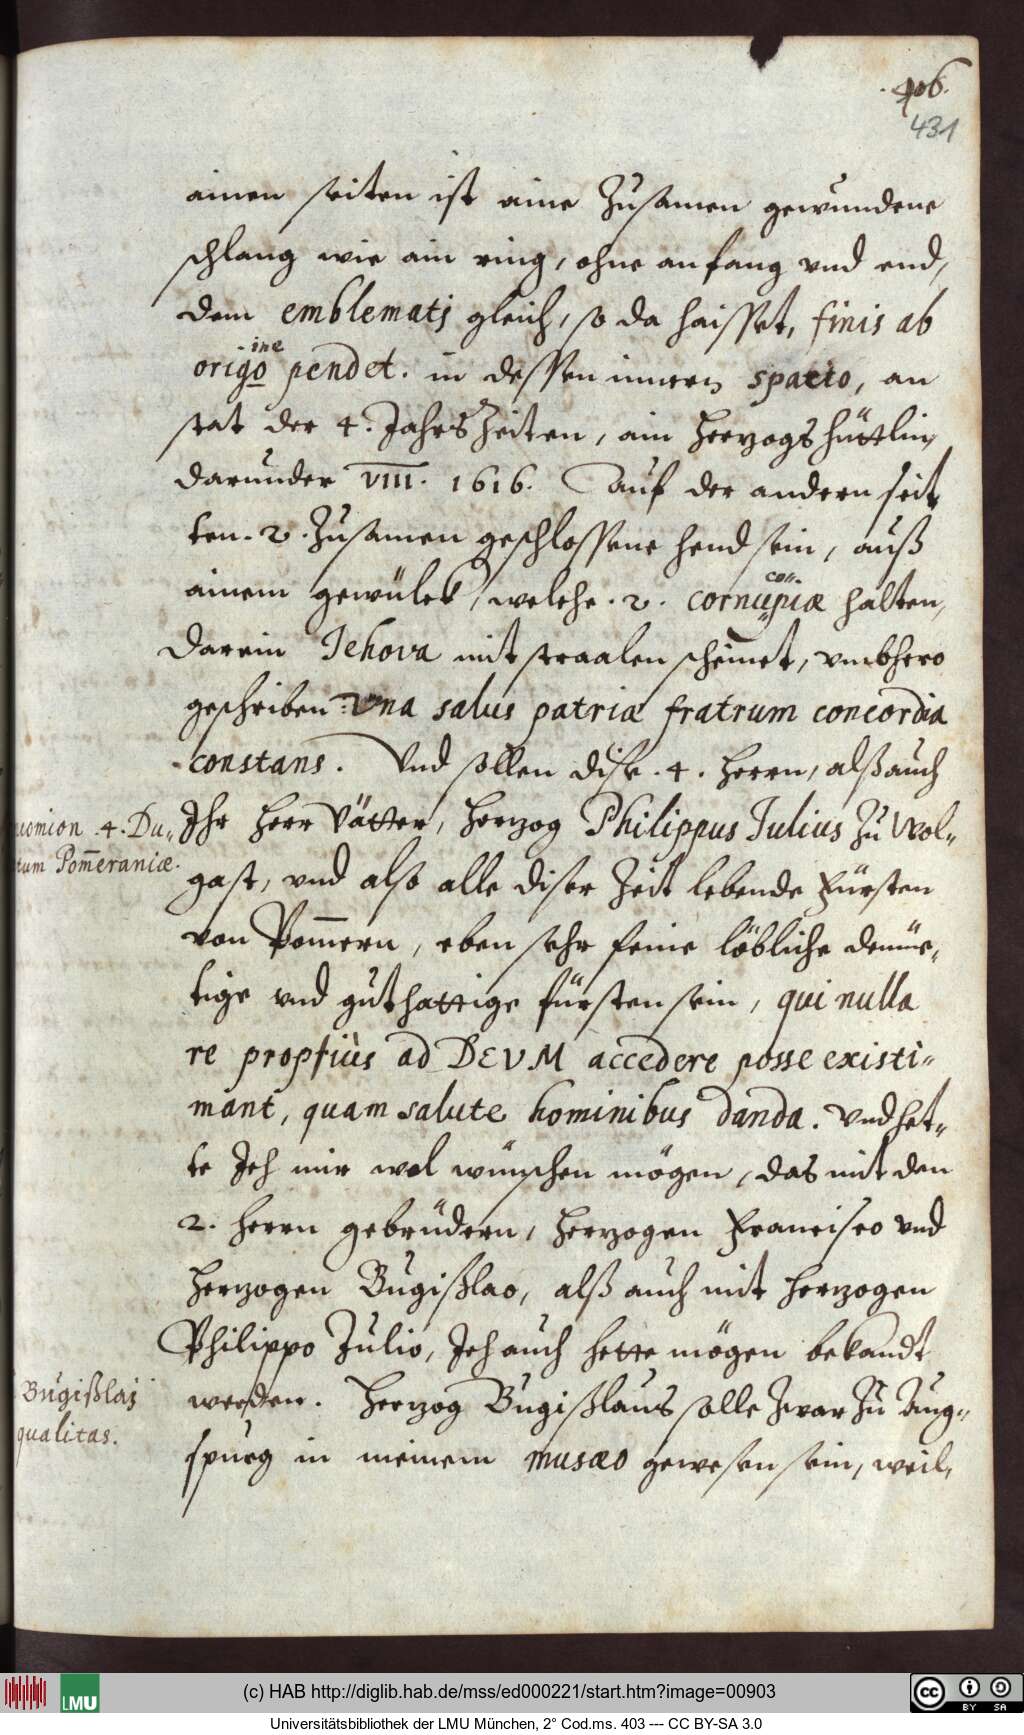 406.
431
ainen seiten ist eine Zusamen gewundene
schlang wie ain ring, ohne anfang vnd end,
dem emblematj gleich, so da haisset, finis ab
origo ine pendet. in dessen innern spacio, an
stat der 4. Jahrs Zeiten, ain Herzogs hüttlin,
darunder VIII. 1616. Auf der andern seit
ten. 2. Zusamen geschlossene hend sein, auß
ainem gewülck, welche. 2. cornupiæ co: halten,
darein Jehova mit straalen scheinet, vmbhero
geschriben: Vna salus patriæ fratrum concordia
constans. Vnd sollen dise. 4. Herrn, alß auch
nomion .4. Du-
cum Pom̄eraniæ.
Ihr Herr Vätter, Herzog Philippus Julius Zu Wol-
gast, vnd also alle diser Zeit lebende Fürsten
von Pom̄ern, eben sehr feine löbliche demüe-
tige vnd guthattige fürsten sein, qui nulla
re propriùs ad DEVM accedere posse existi-
mant, quam salute hominibus danda. Vnd het-
te Ich mir wol wünschen mögen, das mit den
2. Herrn gebrüdern, Herzogen Francisco vnd
Herzogen Bugißlao, alß auch mit Herzogen
Philippo Julio, Ich auch hette mögen bekandt
Bugißlaj
qualitas.
werden. Herzog Bugißlaus solle Zwar Zu Aug-
spurg in meinem musæo gewesen sein, weil-
LMU
(c) HAB http://diglib.hab.de/mss/ed000221/start.htm?image=00903
cc BY SA
Universitätsbibliothek der LMU München, 2° Cod.ms. 403 --- CC BY-SA 3.0